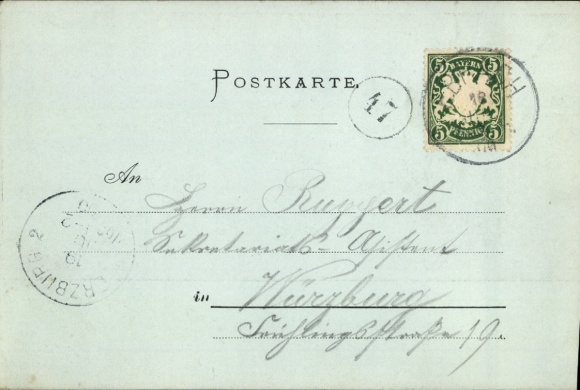 POSTKARTE.
47
5 BAYERN 5
5 PFENNIG 5
An
Herrn Ruppert
Sekretariats-Assistent
in Würzburg
Frühlingsstraße 19.
RZBURG 2